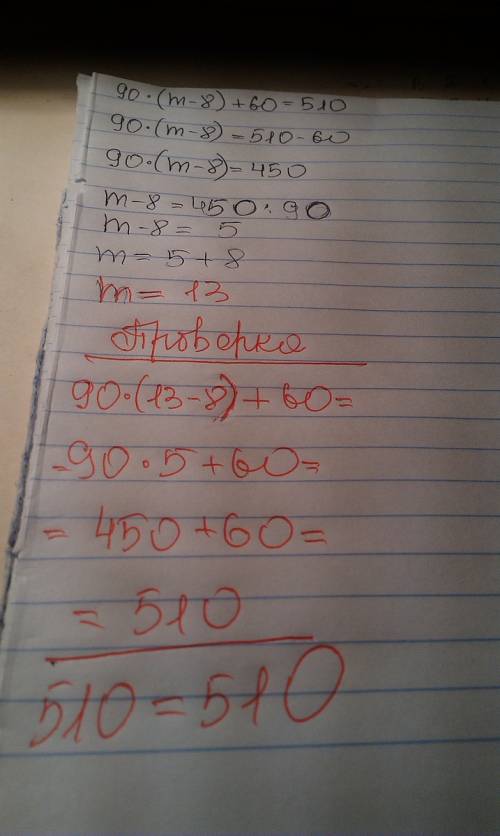 90·(m-8)+60=510
90·(m-8)=510-60
90·(m-8)=450
m-8=450:90
m-8= 5
m=5+8
m= 13
Проверка
90·(13-8)+60=
=90·5+60=
= 450+60=
= 510
510=510